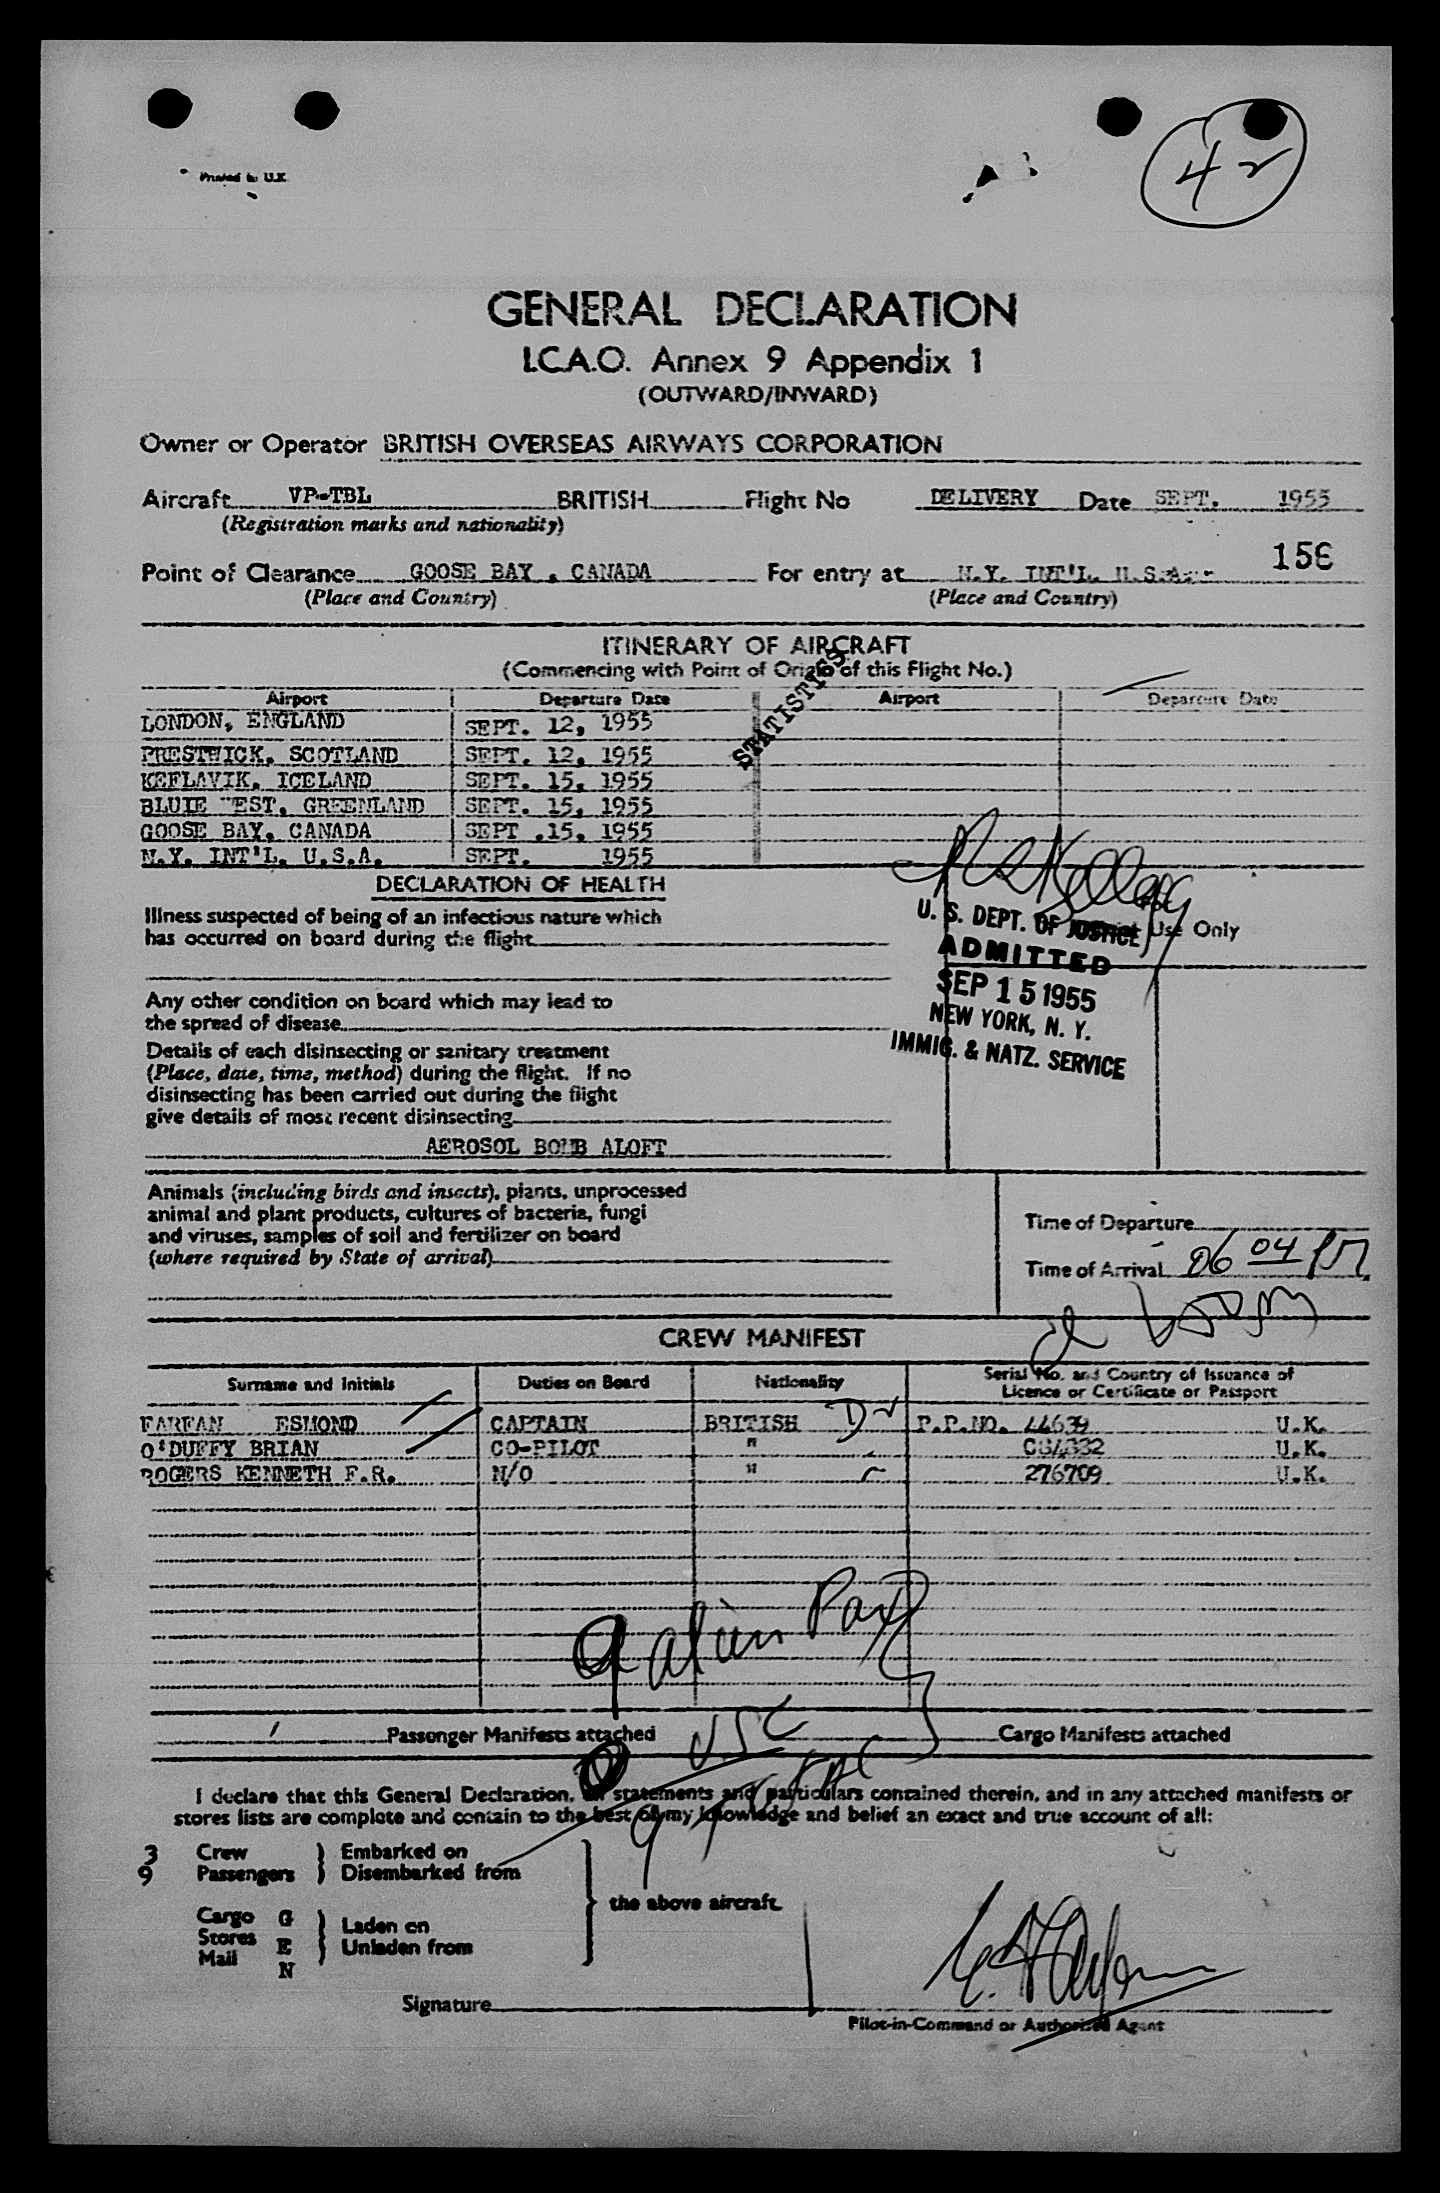 42
Printed in U.K.
GENERAL DECLARATION
I.C.A.O. Annex 9 Appendix 1
(OUTWARD/INWARD)
Owner or Operator BRITISH OVERSEAS AIRWAYS CORPORATION
Aircraft VP-TBL BRITISH Flight No DELIVERY Date SEPT. 1955
(Registration marks and nationality)
158
Point of Clearance GOOSE BAY , CANADA For entry at N.Y. INT'L. U.S.A.
(Place and Country) (Place and Country)
ITINERARY OF AIRCRAFT
(Commencing with Point of Origin of this Flight No.)
STATISTICS
Airport Departure Date Airport Departure Date
LONDON, ENGLAND SEPT. 12, 1955
PRESTWICK, SCOTLAND SEPT. 12, 1955
KEFLAVIK, ICELAND SEPT. 15, 1955
BLUIE WEST, GREENLAND SEPT. 15, 1955
GOOSE BAY, CANADA SEPT .15, 1955
N.Y. INT'L. U.S.A. SEPT. 1955
DECLARATION OF HEALTH
Illness suspected of being of an infectious nature which
has occurred on board during the flight
Use Only
U. S. DEPT. OF JUSTICE
ADMITTED
SEP 15 1955
NEW YORK, N. Y.
IMMIG. & NATZ. SERVICE
Any other condition on board which may lead to
the spread of disease
Details of each disinsecting or sanitary treatment
(Place, date, time, method) during the flight. If no
disinsecting has been carried out during the flight
give details of most recent disinsecting
AEROSOL BOMB ALOFT
Animals (including birds and insects), plants, unprocessed
animal and plant products, cultures of bacteria, fungi
and viruses, samples of soil and fertilizer on board
(where required by State of arrival)
Time of Departure
Time of Arrival 06 04 PM
CREW MANIFEST
Surname and Initials Duties on Board Nationality Serial No. and Country of Issuance of
Licence or Certificate or Passport
FARFAN ESMOND CAPTAIN BRITISH P.P.NO. 44639 U.K.
O'DUFFY BRIAN CO-PILOT " U.K.
ROGERS KENNETH F.R. N/O " 276709 U.K.
9 alien Pax
USC
1 Passenger Manifests attached Cargo Manifests attached
I declare that this General Declaration, all statements and particulars contained therein, and in any attached manifests or
stores lists are complete and contain to the best of my knowledge and belief an exact and true account of all:
3 Crew } Embarked on
9 Passengers } Disembarked from
the above aircraft.
Cargo G } Laden on
Stores E } Unladen from
Mail N
Signature
Pilot-in-Command or Authorised Agent